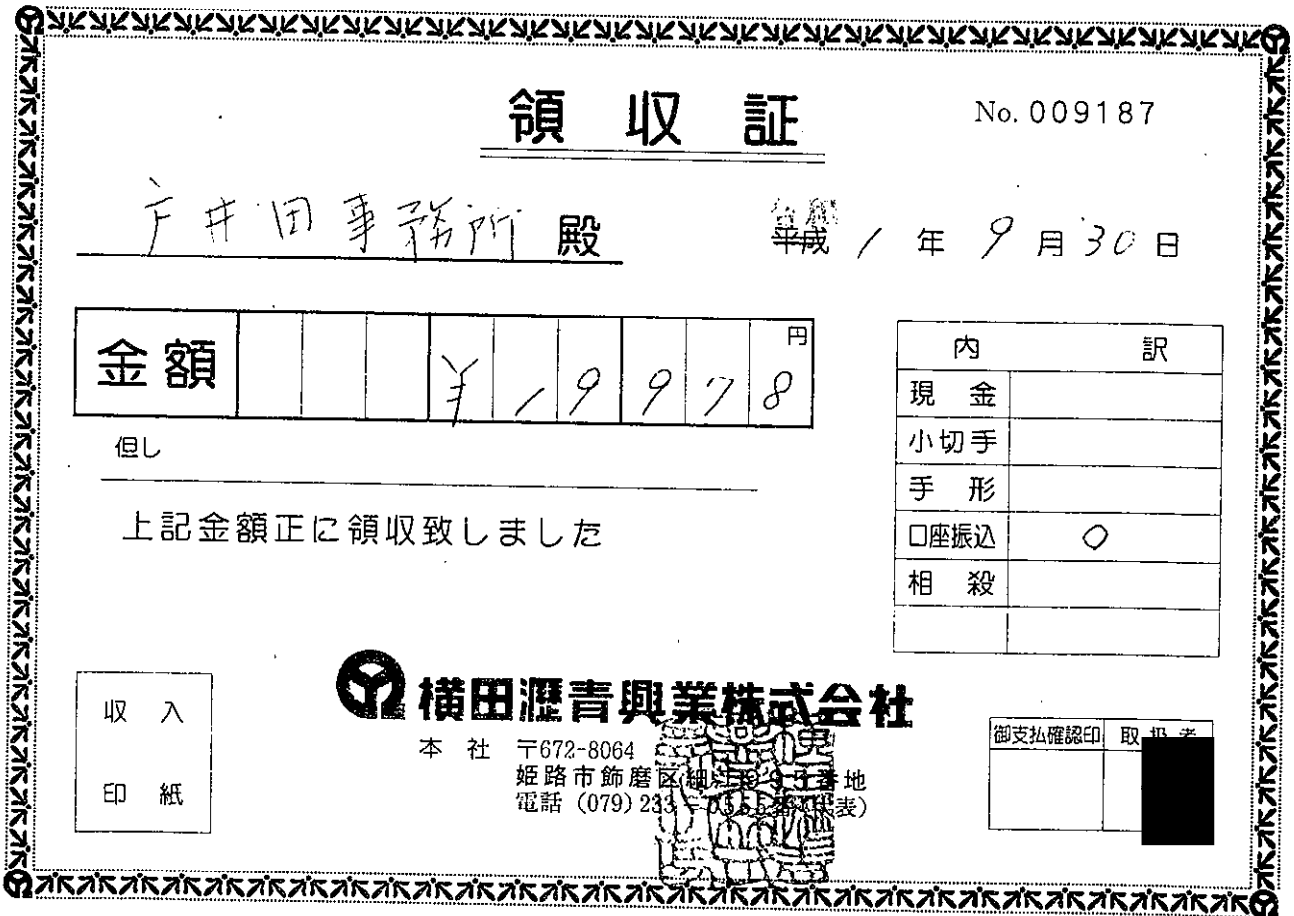 領収証
No. 009187
戸井田事務所 殿
令和 平成 1 年 9 月 30 日
金額 ¥19978 円
但し
上記金額正に領収致しました
内訳
現金
小切手
手形
口座振込 ○
相殺
収入
印紙
横田瀝青興業株式会社
本社 〒672-8064
姫路市飾磨区細江995番地
電話 (079) 233
御支払確認印 取扱者